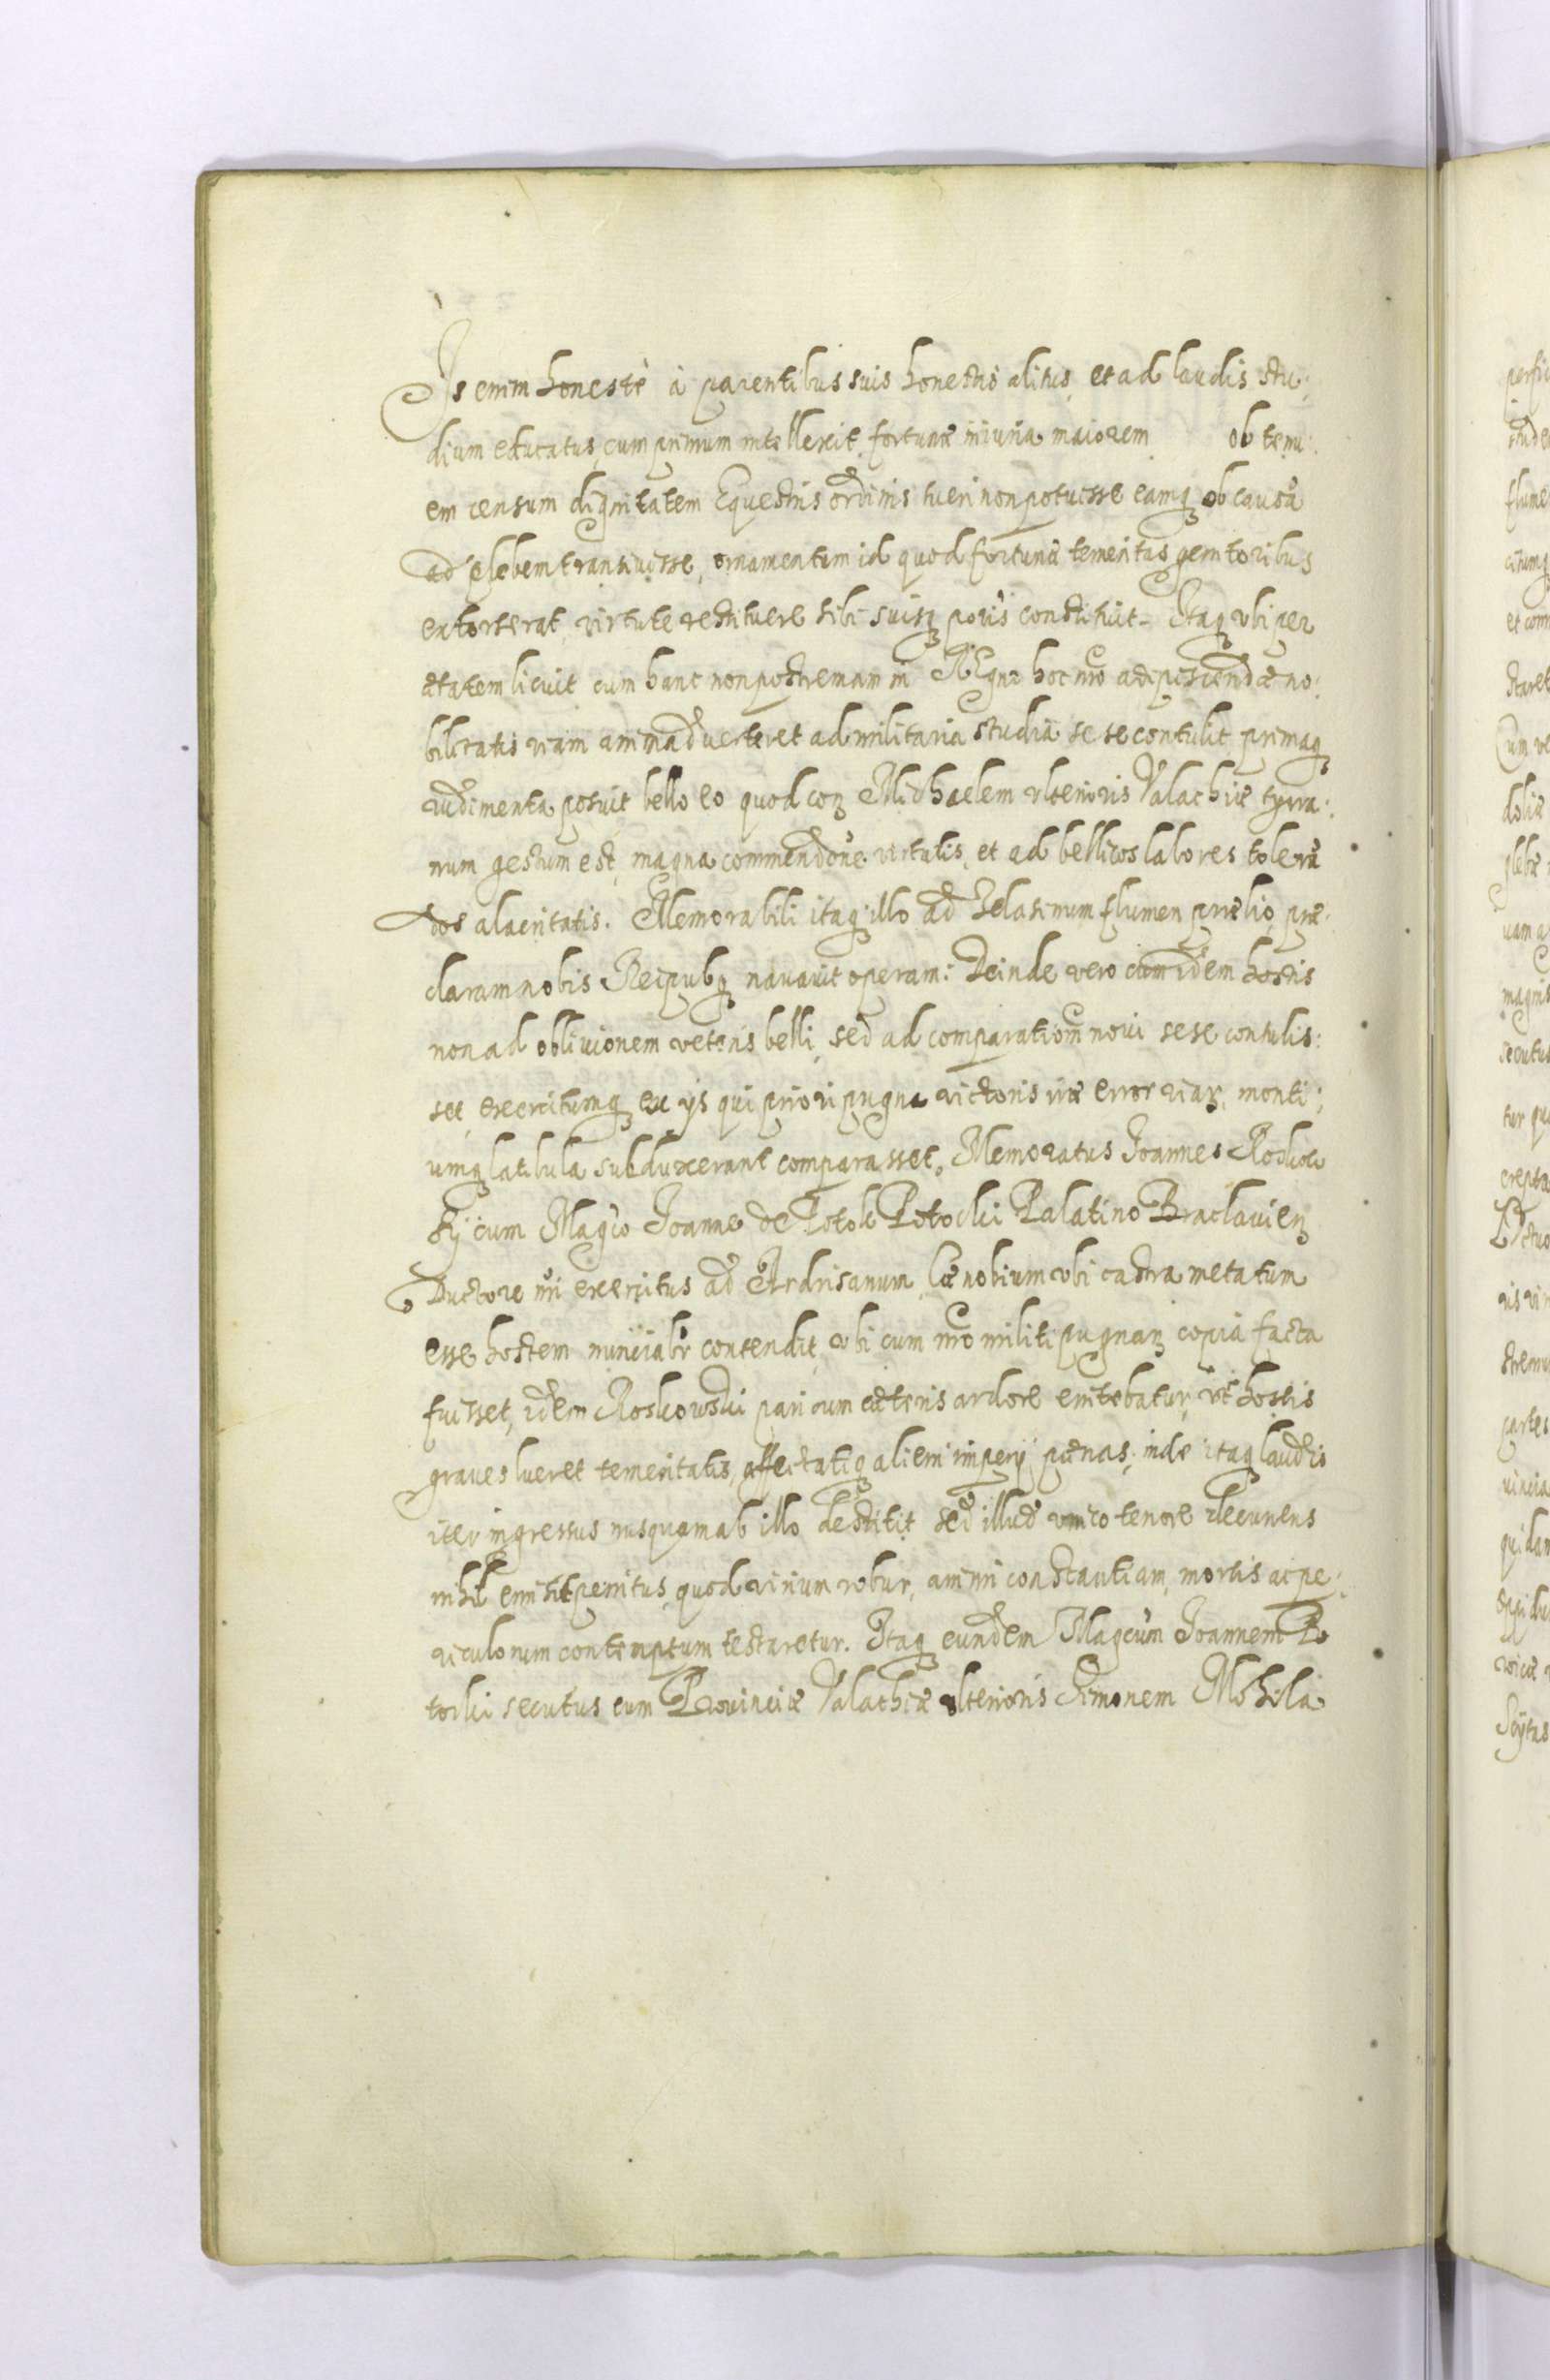 Is enim honestè à parentibus suis honestis alitus, et ad laudis stu:
dium educatus, cum primum intellexit, fortunæ iniuria maiorem ob tenu:
em censum dignitatem Equestris ordinis tueri non potuisse eamq ob causã
ad plebem transivisse, ornamentum id quod fortunæ temeritas genitoribus
extorserat, virtute restituere sibi suisq poris constituit. Itaq ubi per
ætatem licuit cum hanc non postremam in Regno hoc nro adipiscendæ no:
bilitatis viam animadverteret ad militaria studia sese contulit, primaq
rudimenta posuit bello eo quod con Michaelem ulterioris Valachiæ tyra:
num gestum est, magna commendone virtutis, et ad bellicos labores tolerã
dos alacritatis. Memorabili itaq illo ad Telasinum flumen prælio, præ:
claram nobis Reipubq navavit operam: Deinde vero cum idem hostis
non ad oblivionem veteris belli, sed ad comparationẽ novi sese contulis:
set, exercitumq ex ijs qui priori pugna victoris iræ error viar, monti:
umq latibula subduxerant comparasset, Memoratus Joannes Roskow
skj cum Magco Joanne de Potok Potocki Palatino Braclavien
Ductore nri exercitus ad Ardrisanum Cœnobium ubi castra metatum
esse hostem nunciabr contendit, ubi cum nro militi pugnan copia facta
fuisset, idem Roskowski pari cum cæteris ardore enitebatur, ut hostis
graves lueret temeritatis, affectatiq alieni imperij pœnas, inde itaq laudis
iter ingressus nusquam ab illo destitit sed illud unico tenore decurrens
nihil omisit penitus, quod virium robur, animi constantiam, mortis ac pe:
riculorum contemptum testaretur. Itaq eundem Magcum Joannem Po
tocki secutus cum Provinciæ Valachiæ ulterioris Simonem Mohila